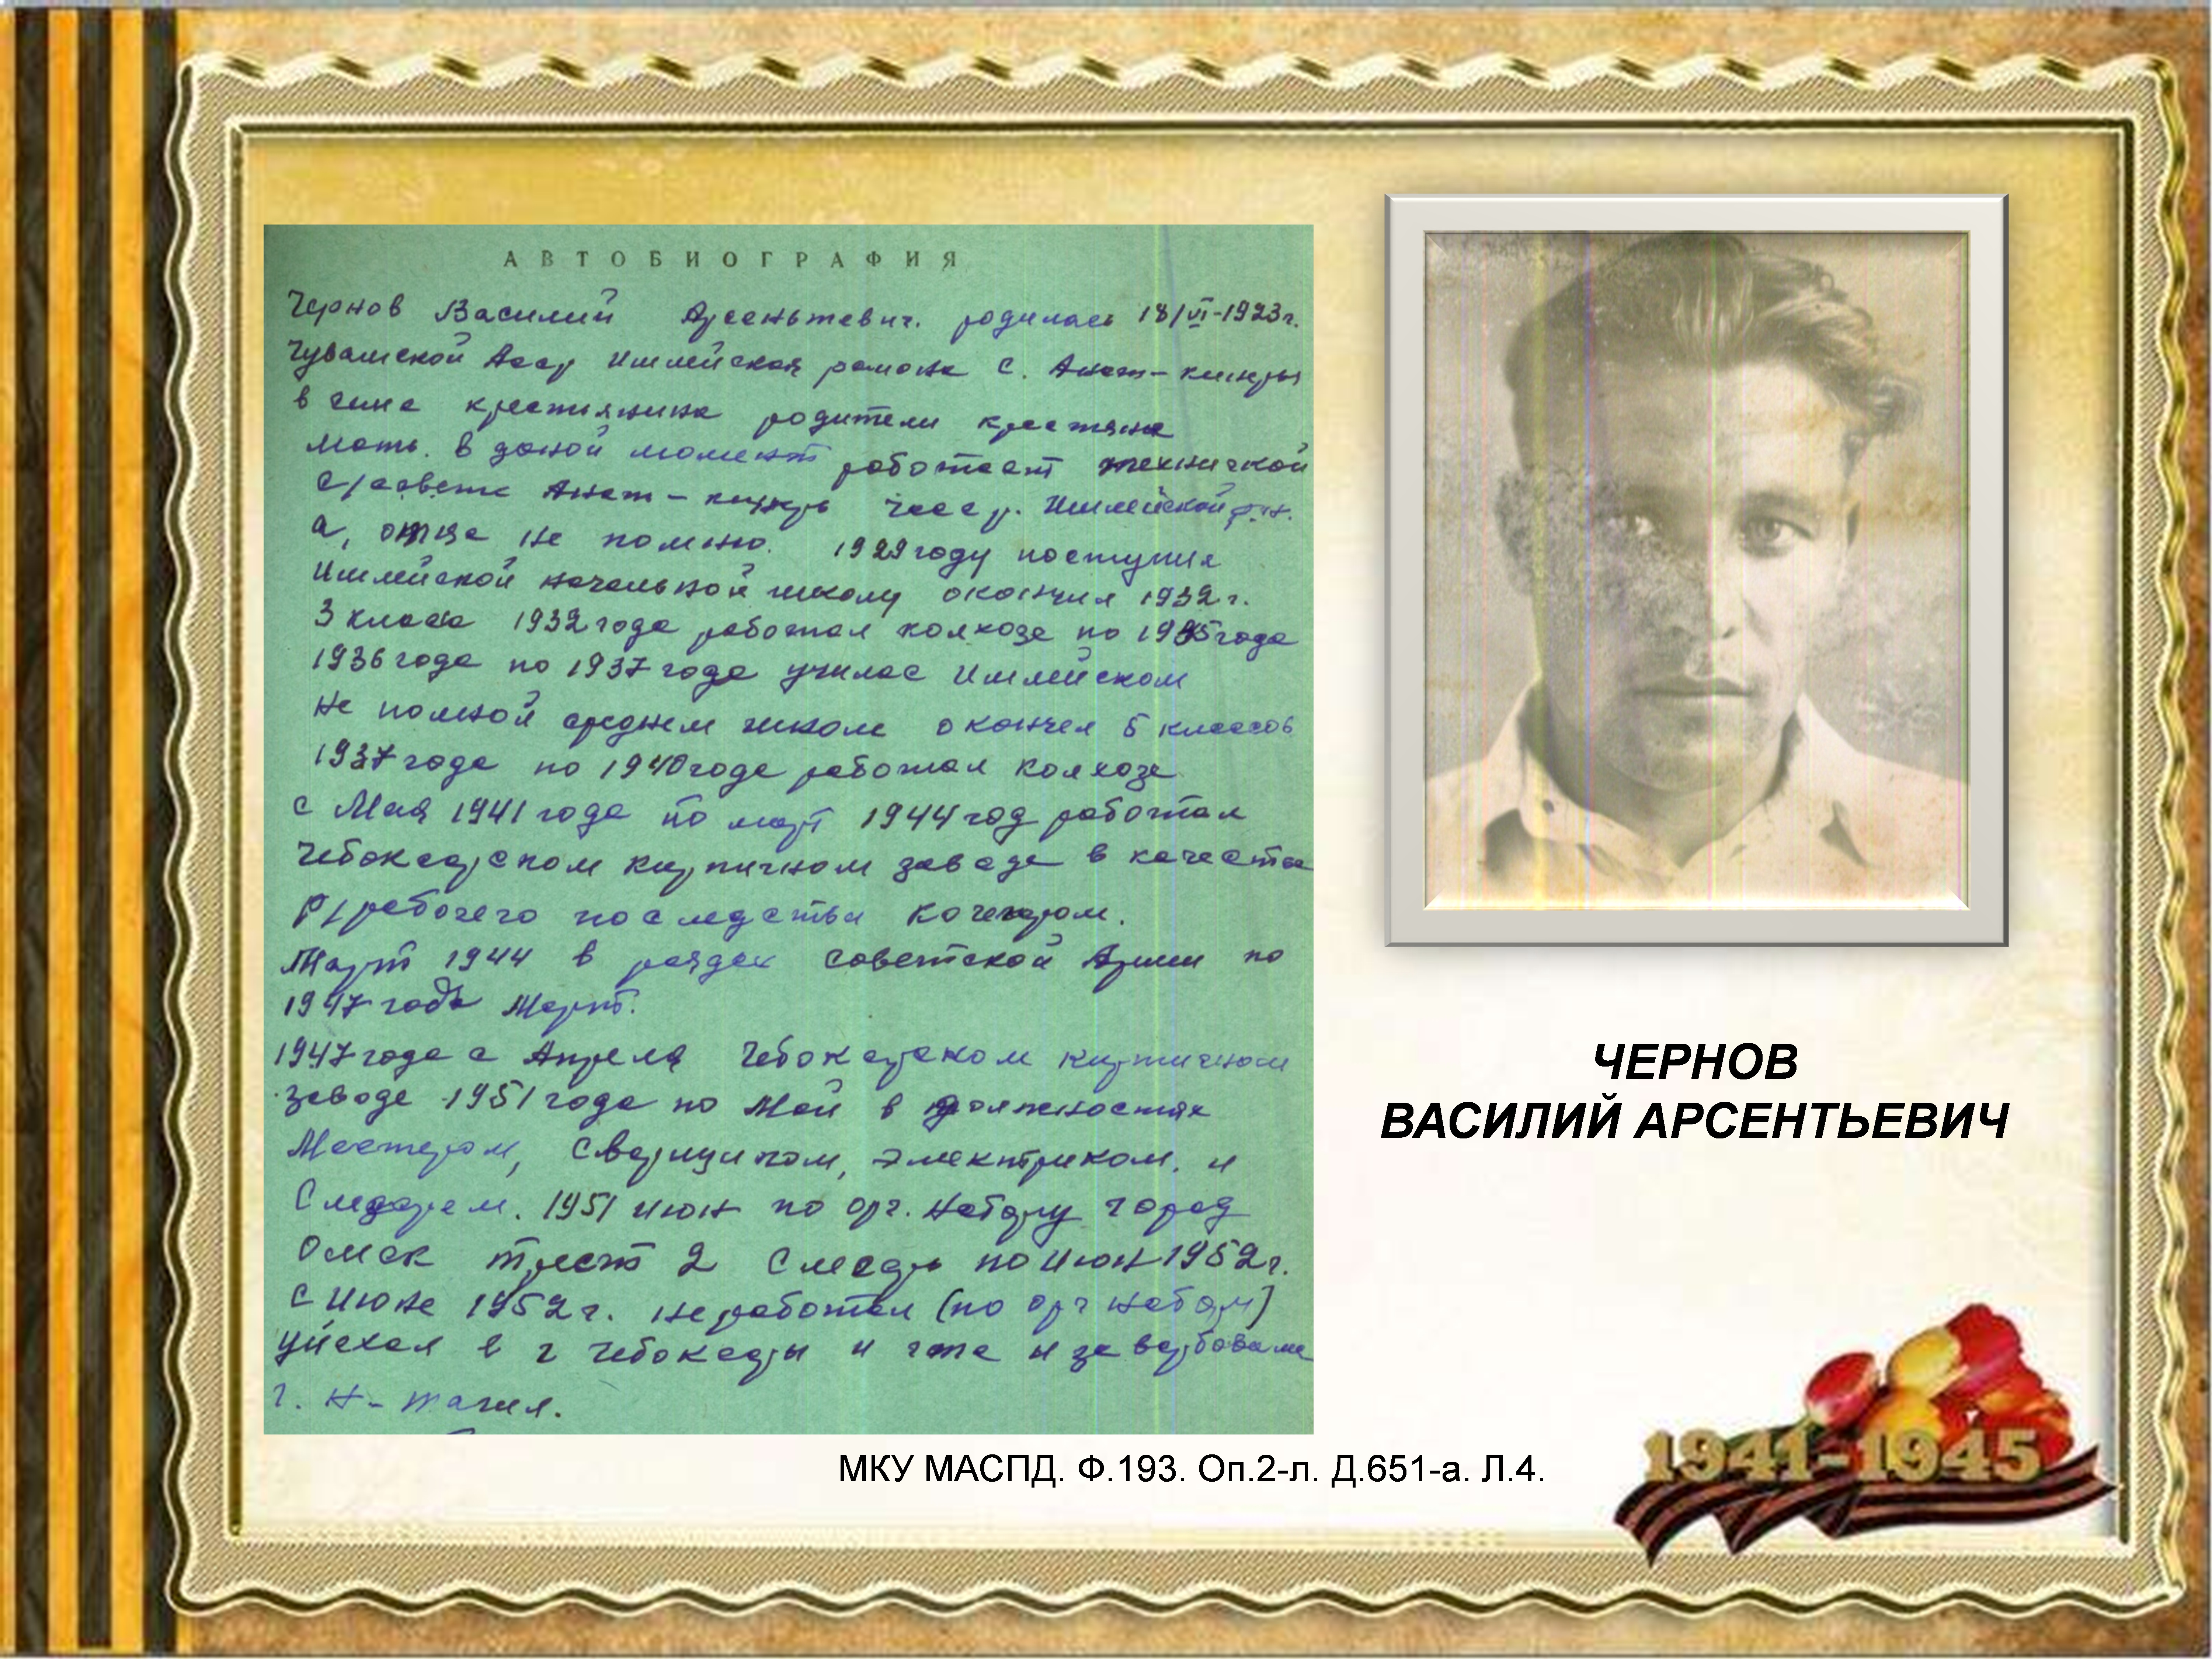 АВТОБИОГРАФИЯ
Чернов Василий Арсентьевич. родилась 18/VI-1923г.
Чувашской Асср Ишлейская района с. Анат-киняры
в семе крестиянина родители крестяне
мать. в даной момент работает техничкой
с/совете Анат-киняр Чесср. Ишлейской р.н.
а, отца не помню. 1929 году поступил
Ишлейской начальной школу окончил 1932г.
3 класса 1932 года работал колхозе по 1935 года
1936 года по 1937 года училас Ишлейском
не полной среднем школе окончел 5 классов
1937 года по 1940 годе работал колхозе
с Мая 1941 года по март 1944 год работал
Чебоксарском кирпичном заводе в качестве
Р/рабочего последстви кочегаром.
Март 1944 в рядах советской Армии по
1947 года Март.
1947 года с Апреля Чебоксарском кирпичном
заводе 1951 года по Май в должностях
Мастером, Сварщиком, электриком, и
Слесарем. 1951 июн по орг. набору город
Омск трест 2 Слесарь по Июн 1952г.
с Июне 1952г. не работал (по орг набору)
уйехал в г Чебоксары и завербовалс
г. Н-тагил.
ЧЕРНОВ
ВАСИЛИЙ АРСЕНТЬЕВИЧ
МКУ МАСПД. Ф.193. Оп.2-л. Д.651-а. Л.4.
1941-1945